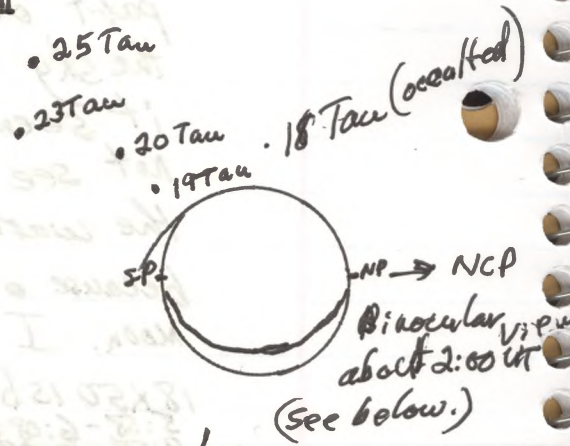 25 Tau
23 Tau
20 Tau
18 Tau (occulted)
19 Tau
SP
NP → NCP
Binocular view
about 2:00 UT
(see below.)